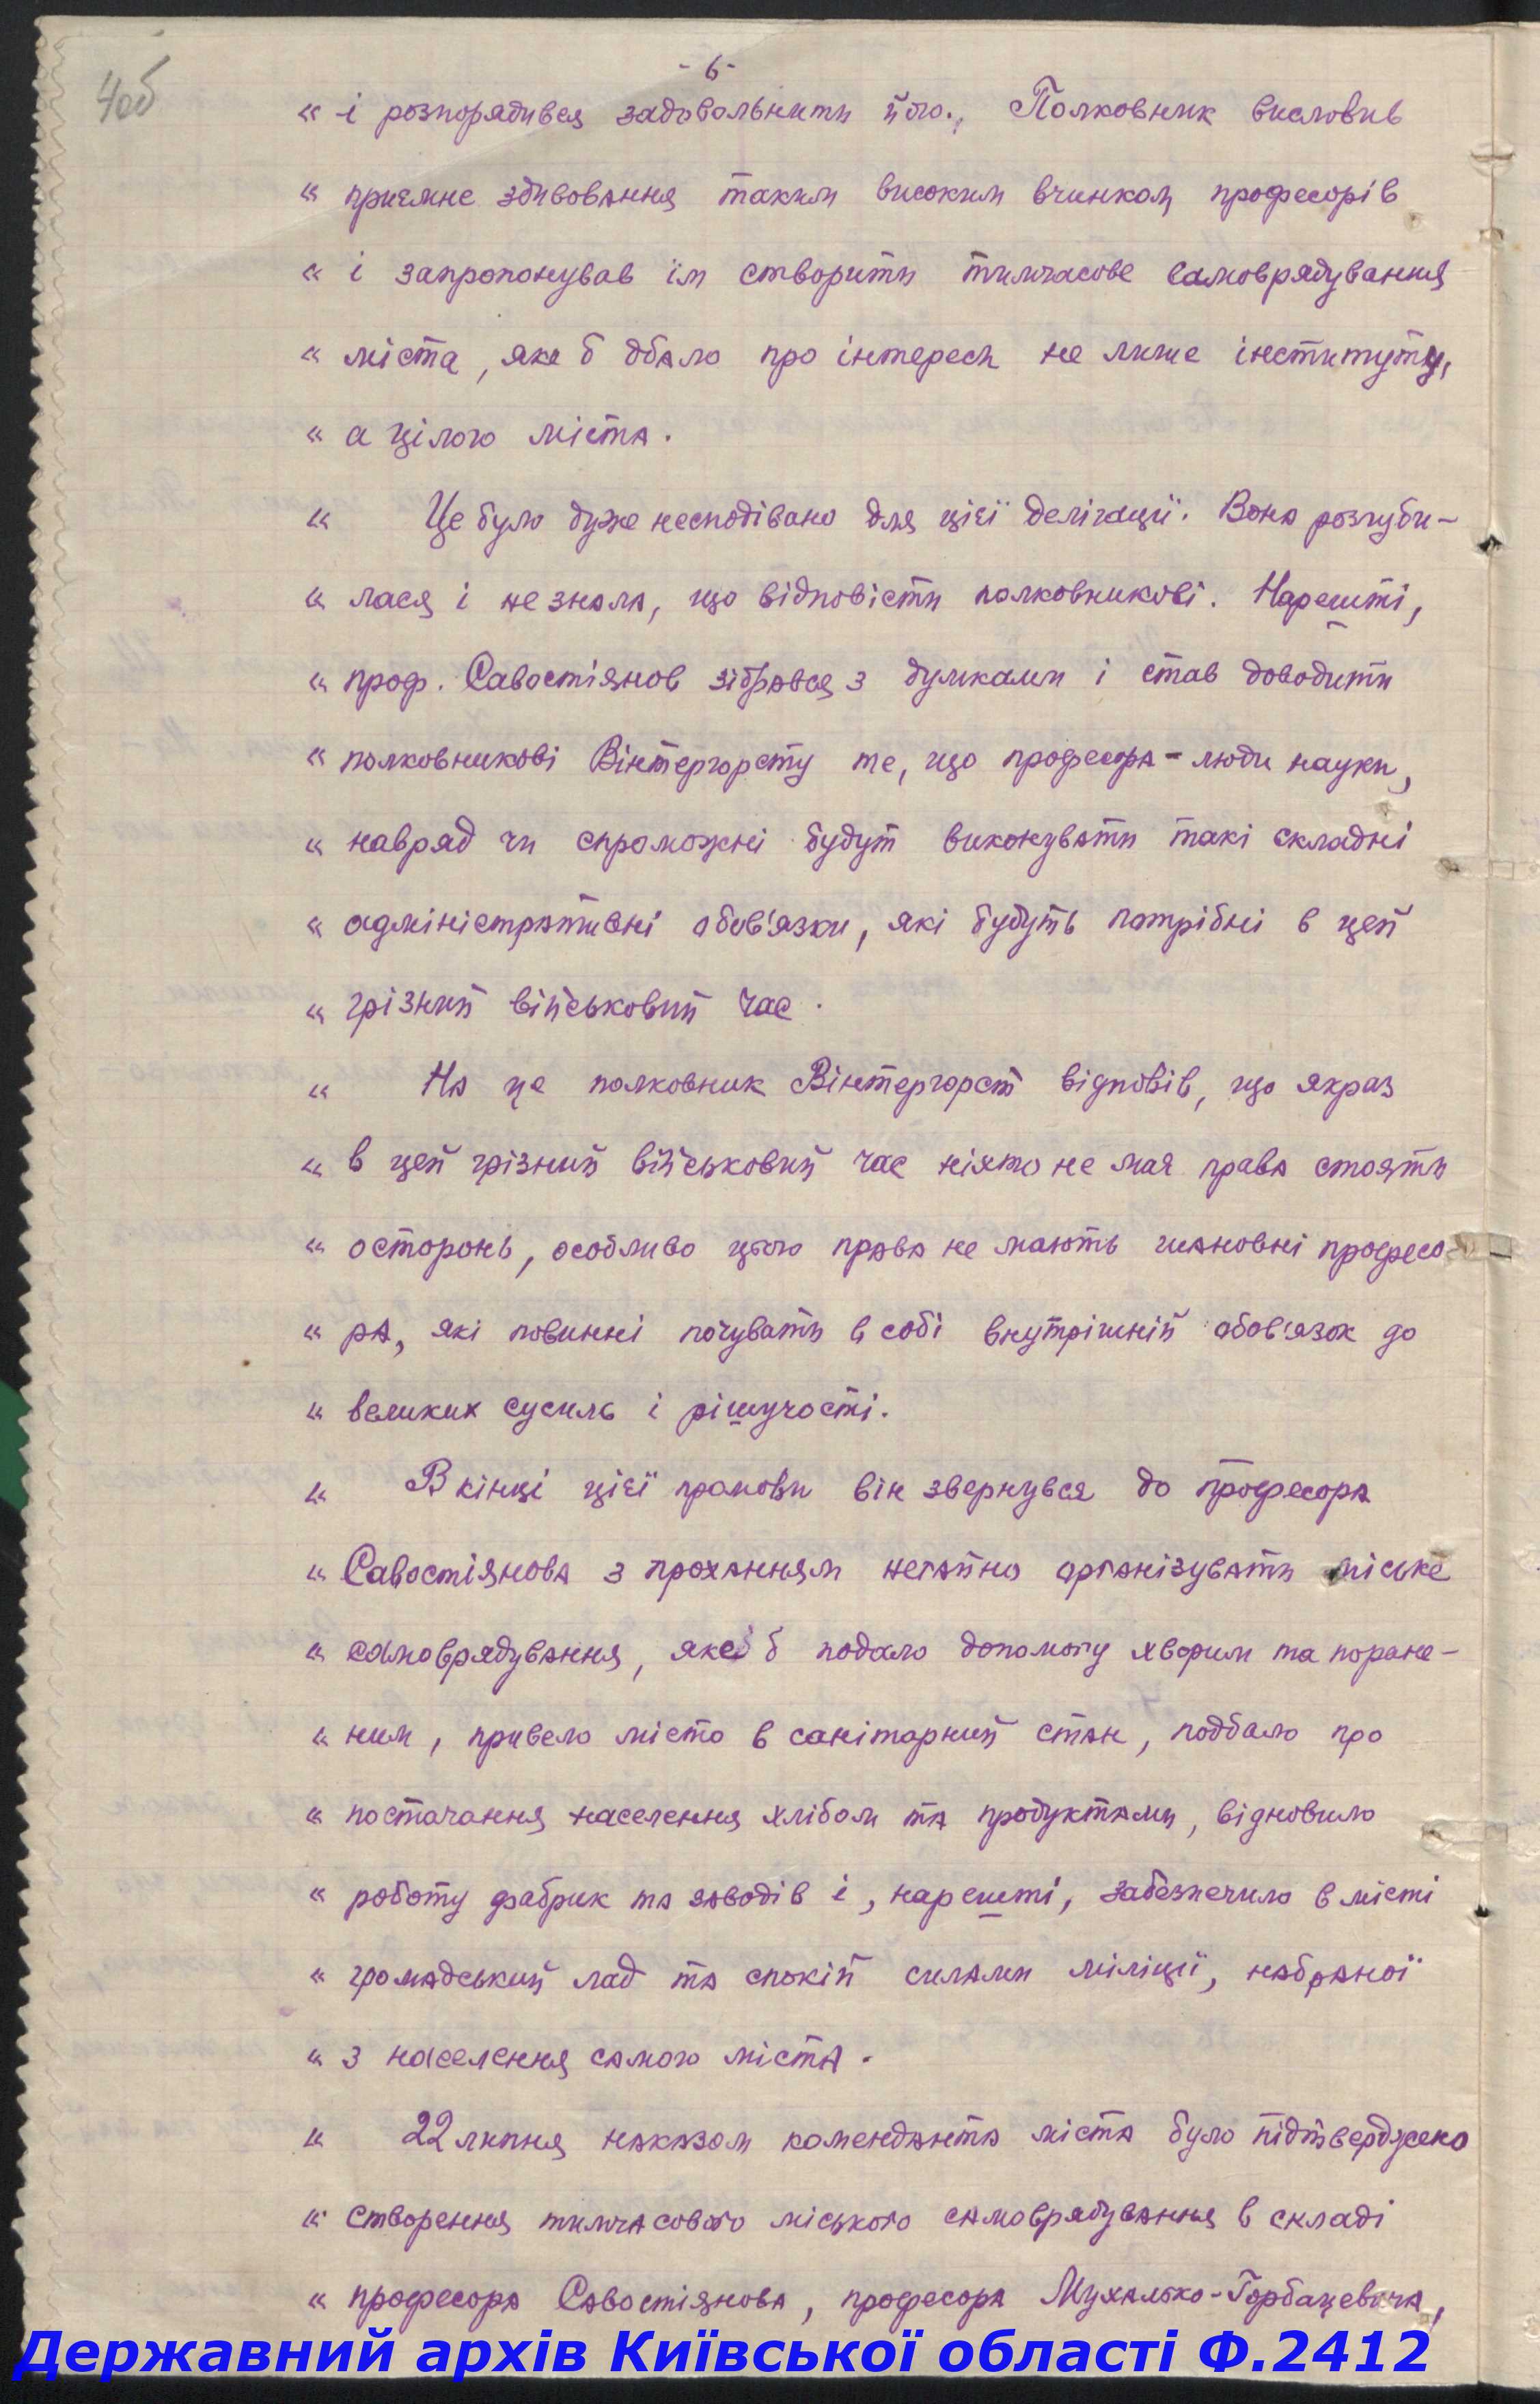 - 6 -
4об
« і розпорядився задовольнити його., Полковник висловив
« приємне здивовання таким високим вчинком професорів
« і запропонував їм створити тимчасове самоврядування
« міста, яке б дбало про інтереси не лише інституту,
« а цілого міста.
« Це було дуже несподівано для цієї делігації. Вона розгуби-
« лася і не знала, що відповісти полковникові. Нарешті,
« проф. Савостіянов зібрався з думками і став доводити
« полковникові Вінтергорсту те, що професора - люди науки,
« навряд чи спроможні будут виконувати такі складні
« адміністративні обов'язки, які будуть потрібні в цей
« грізний військовий час.
« На це полковник Вінтергорст відповів, що якраз
« в цей грізний військовий час ніхто не має права стояти
« осторонь, особливо цього права не мають шановні професо-
« ра, які повинні почувати в собі внутрішній обов'язок до
« великих сусиль і рішучості.
« В кінці цієї промови він звернувся до професора
« Савостіянова з проханням негайно організувати міське
« самоврядування, яке б подало допомогу хворим та поране-
« ним, привело місто в санітарний стан, подбало про
« постачання населення хлібом та продуктами, відновило
« роботу фабрик та заводів і, нарешті, забезпечило в місті
« громадський лад та спокій силами міліції, набраної
« з населення самого міста.
« 22 липня наказом коменданта міста було підтверджено
« створення тимчасового міського самоврядування в складі
« професора Савостіянова, професора Мухалько-Горбацевича,
Державний архів Київської області Ф.2412